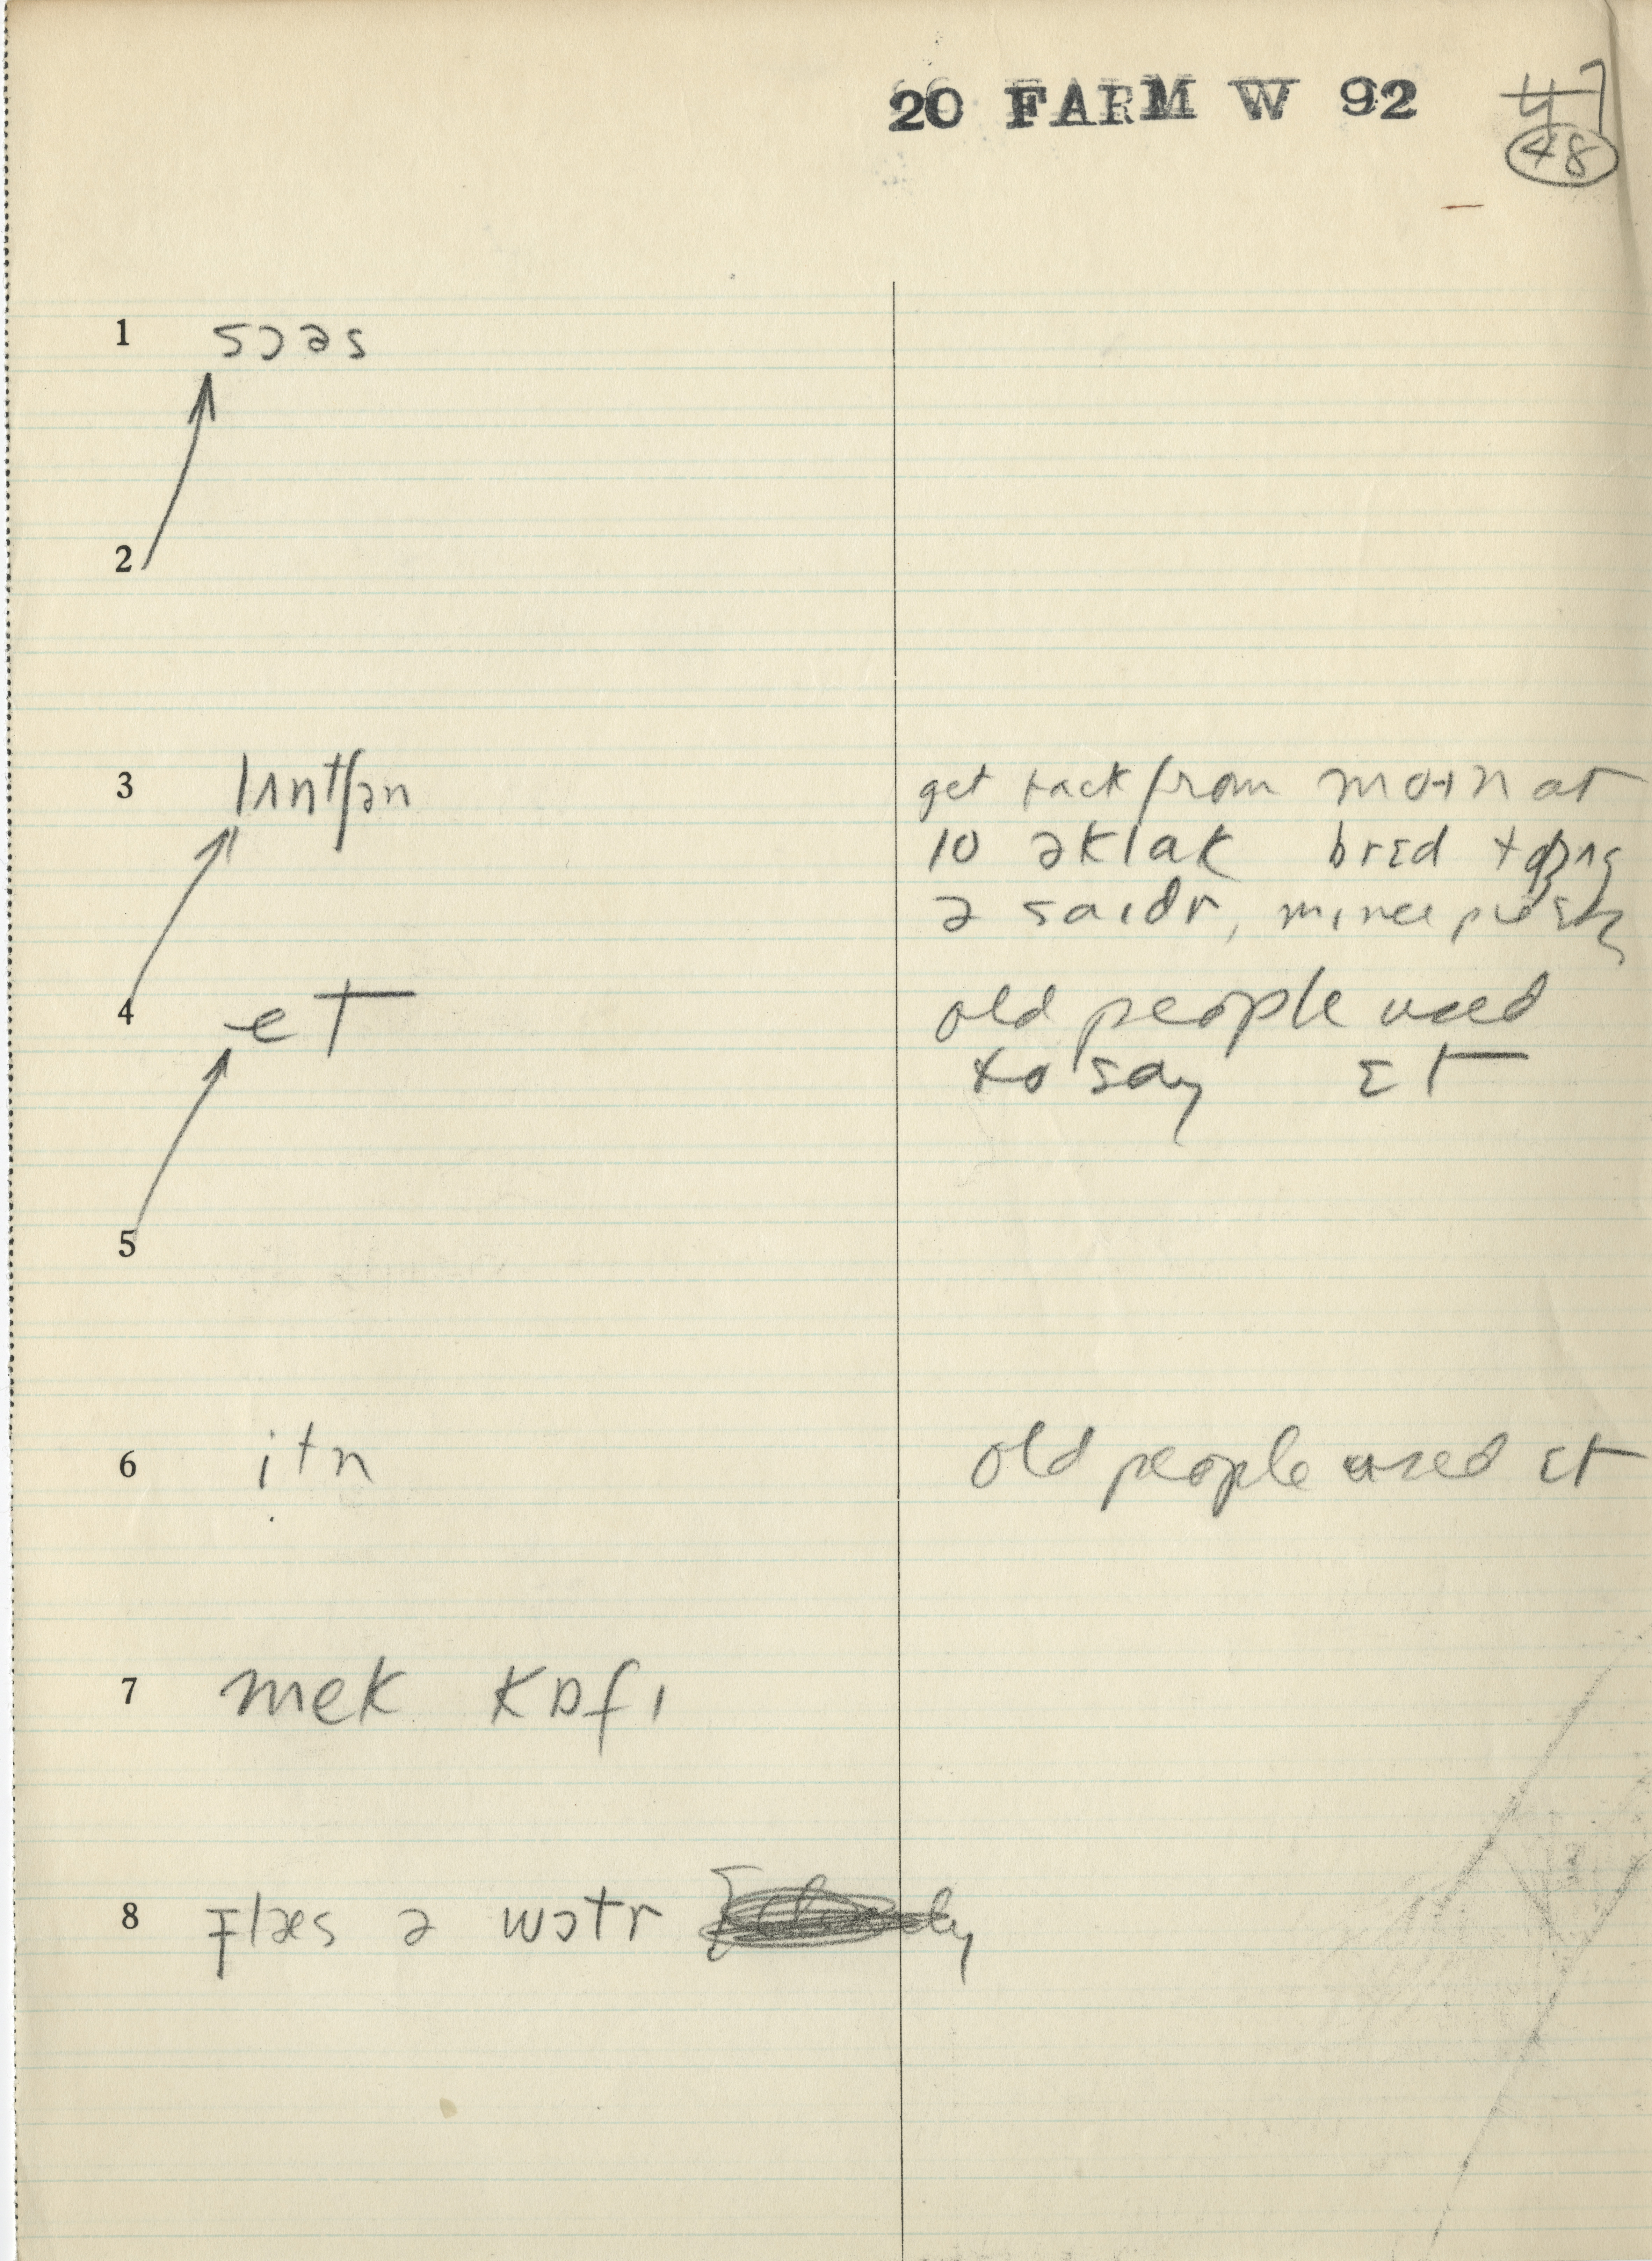 20 FARM W 92 47
48
1 sɔəs
2
3 lʌntʃən get back from mo+n at
10 əklak brɛd
ə saɪdr, mince
4 et old people used
to say ɛt
5
6 itn old people used ɛt
7 mek kɒfɪ
8 glæs ə wɔtr